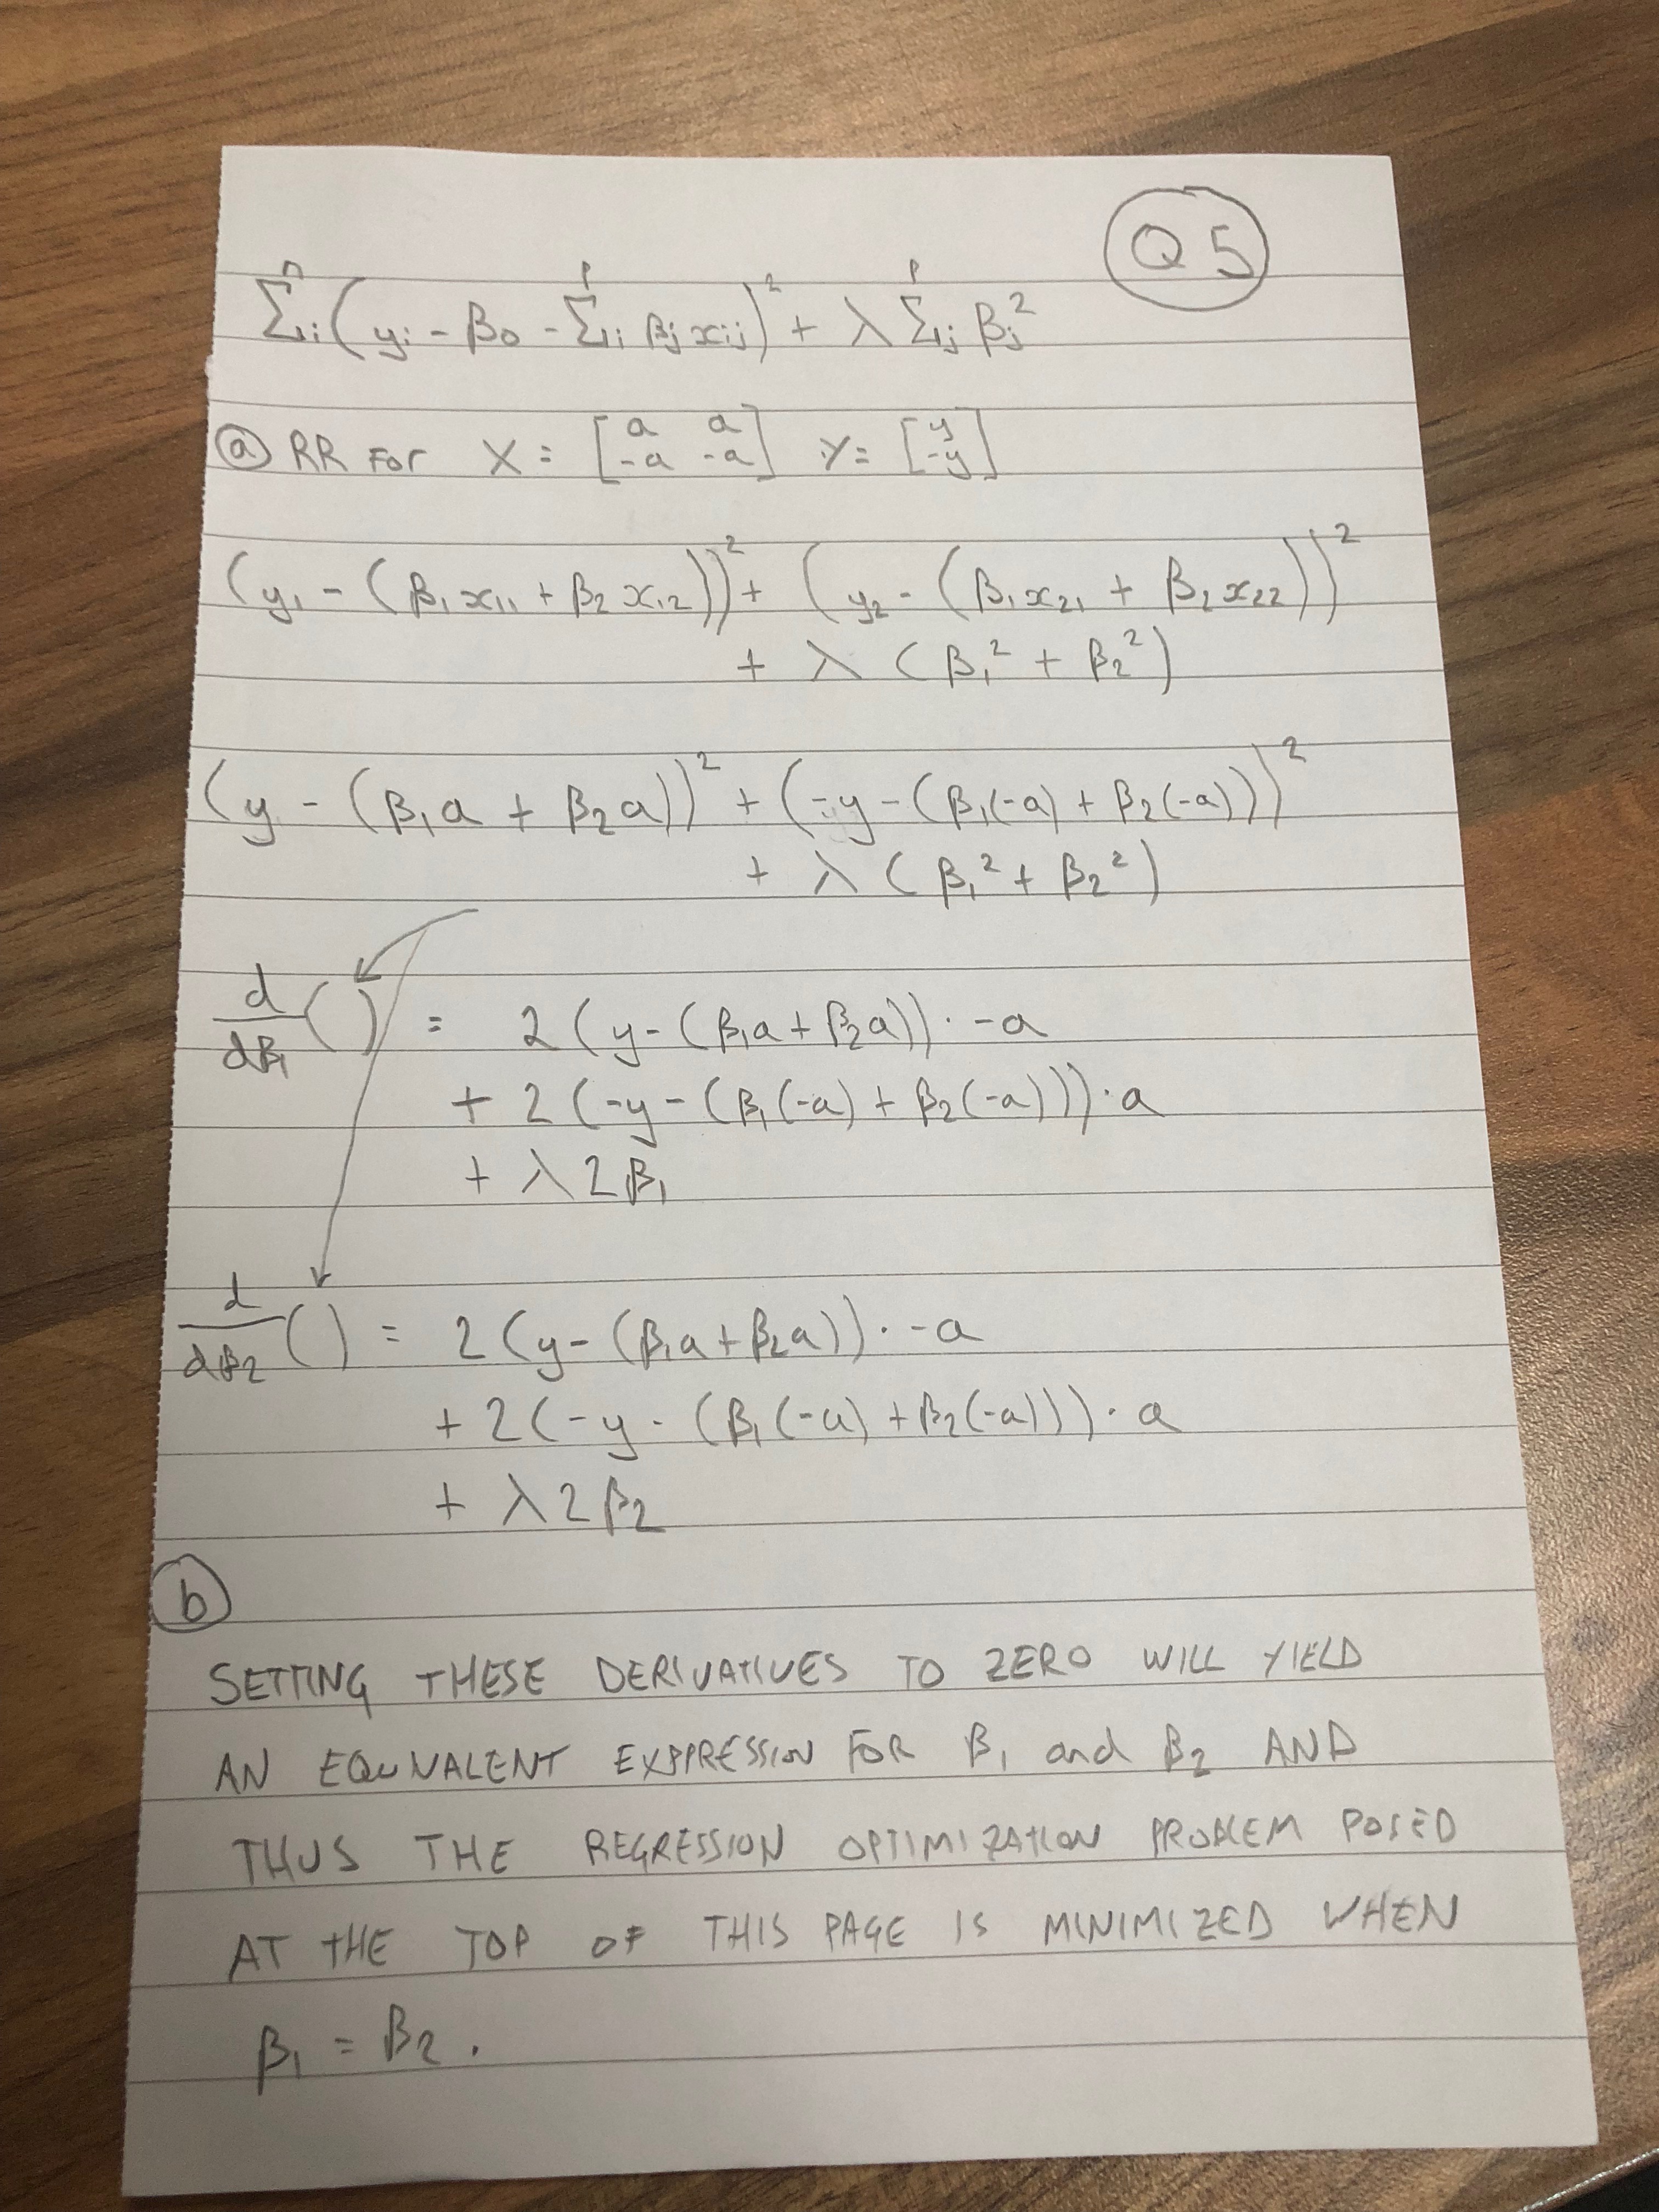 Q5
Σᵢⁿ(yᵢ - β₀ - Σᵢᵖ βⱼxᵢⱼ)² + λ Σⱼᵖ βⱼ²
ⓐ RR FOR X = [a a; -a -a] Y = [y; -y]
(y₁ - (β₁x₁₁ + β₂x₁₂))² + (y₂ - (β₁x₂₁ + β₂x₂₂))²
+ λ(β₁² + β₂²)
(y - (β₁a + β₂a))² + (-y - (β₁(-a) + β₂(-a)))²
+ λ(β₁² + β₂²)
d/dβ₁ ( ) = 2(y - (β₁a + β₂a)) · -a
+ 2(-y - (β₁(-a) + β₂(-a))) · a
+ λ2β₁
d/dβ₂ ( ) = 2(y - (β₁a + β₂a)) · -a
+ 2(-y - (β₁(-a) + β₂(-a))) · a
+ λ2β₂
ⓑ
SETTING THESE DERIVATIVES TO ZERO WILL YIELD
AN EQUIVALENT EXPPRESSION FOR β₁ and β₂ AND
THUS THE REGRESSION OPTIMIZATION PROBLEM POSED
AT THE TOP OF THIS PAGE IS MINIMIZED WHEN
β₁ = β₂.